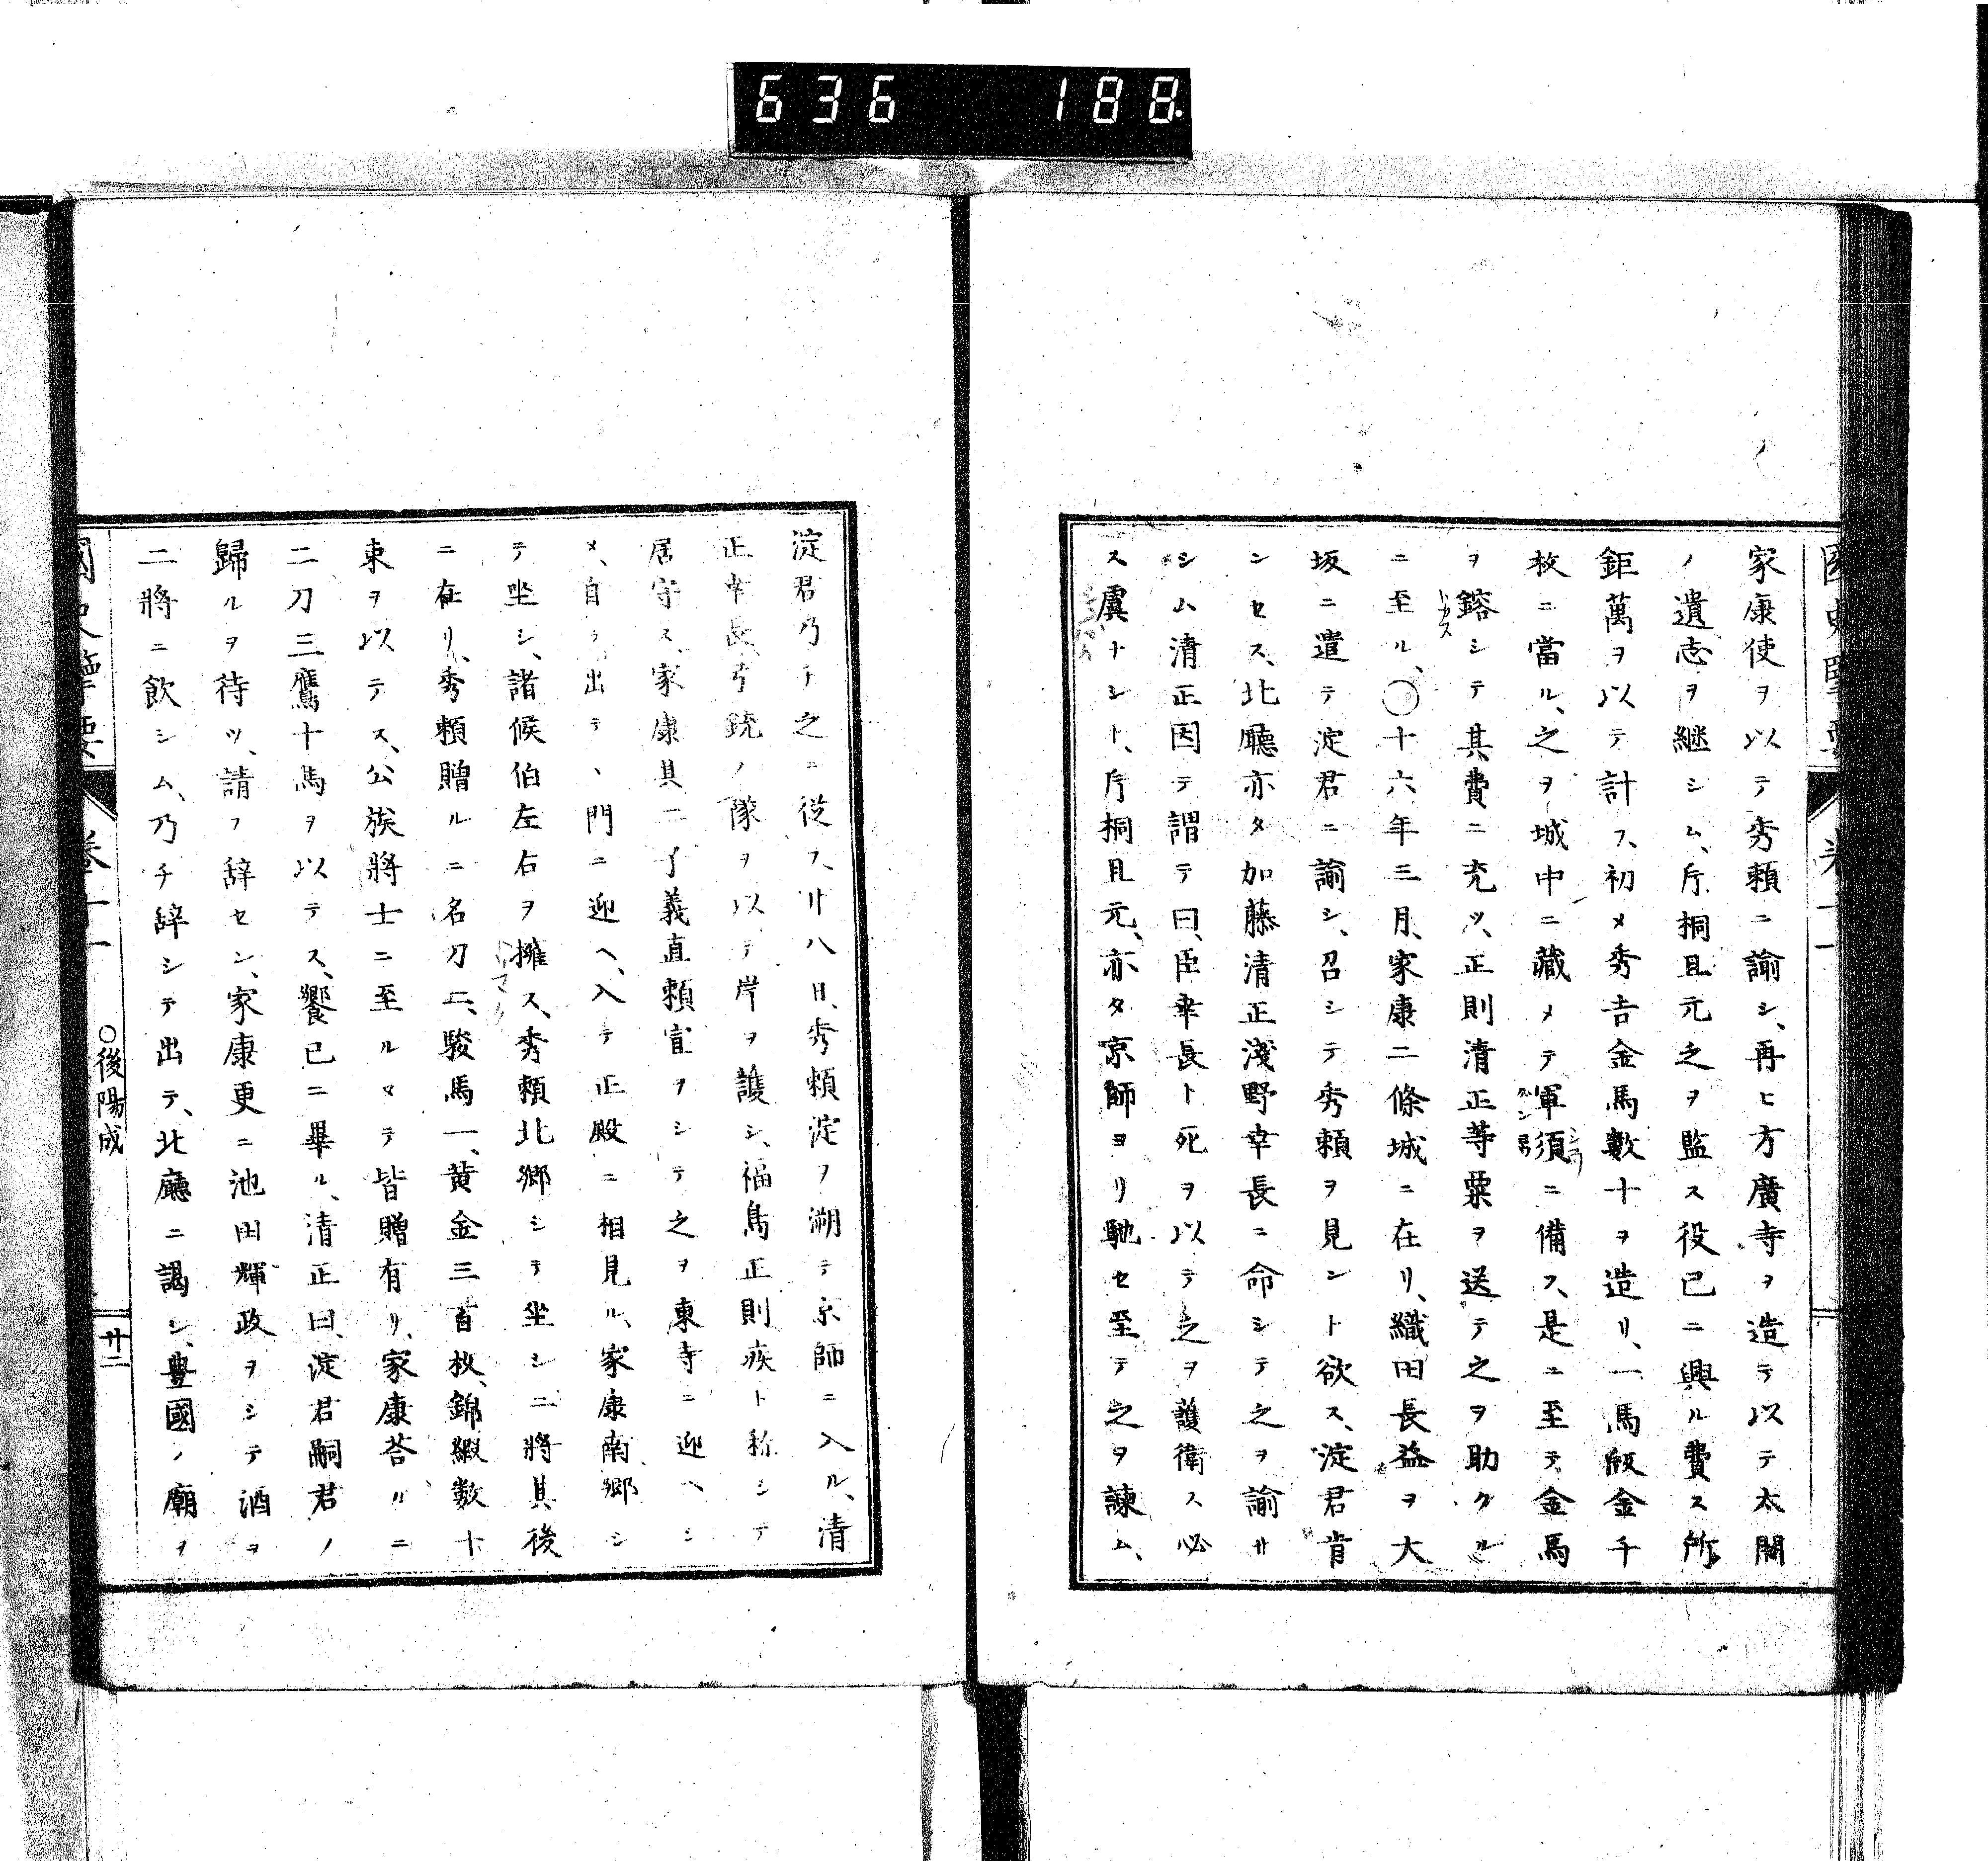 636 188.
家康使ヲ以テ秀頼ニ諭シ、再ヒ方廣寺ヲ造テ以テ太閤
ノ遺志ヲ継シム、片桐且元之ヲ監ス役已ニ興ル費ス所
鉅萬ヲ以テ計フ、初メ秀吉金馬數十ヲ造リ、一馬段金千
枚ニ當ル、之ヲ城中ニ藏メテ軍須ニ備フ、是ニ至テ金馬
ヲ鎔シテ其費ニ充ツ、正則清正等粟ヲ送テ之ヲ助クル
ニ至ル、○十六年三月、家康二條城ニ在リ、織田長益ヲ大
坂ニ遣テ淀君ニ諭シ、召シテ秀頼ヲ見ント欲ス、淀君肯
ンセス、北廳亦タ加藤清正淺野幸長ニ命シテ之ヲ諭サ
シム清正因テ謂テ曰、臣幸長ト死ヲ以テ之ヲ護衛ス必
ス虞ナシト、片桐且元、亦タ京師ヨリ馳セ至テ之ヲ諫ム、
淀君乃チ之ニ從フ、廿八日、秀頼淀ヲ溯テ京師ニ入ル、清
正幸長、弓銃ノ隊ヲ以テ岸ヲ護シ、福島正則疾ト称シテ
居守ス、家康其二子義直頼宣ヲシテ之ヲ東寺ニ迎ヘシ
メ、自ラ出テ、門ニ迎ヘ、入テ正殿ニ相見ル、家康南郷シ
テ坐シ、諸候伯左右ヲ擁ス、秀頼北郷シテ坐シ二將其後
ニ在リ、秀頼贈ルニ名刀二、駿馬一、黄金三百枚、錦緞数十
束ヲ以テス、公族將士ニ至ルマテ皆贈有リ、家康荅ルニ
二刀三鷹十馬ヲ以テス、饗已ニ畢ル、清正曰、淀君嗣君ノ
歸ルヲ待ツ、請フ辞セン、家康更ニ池田輝政ヲシテ酒ヲ
二將ニ飲シム、乃チ辞シテ出テ、北廳ニ謁シ、豊國ノ廟ヲ
○後陽成
廿二